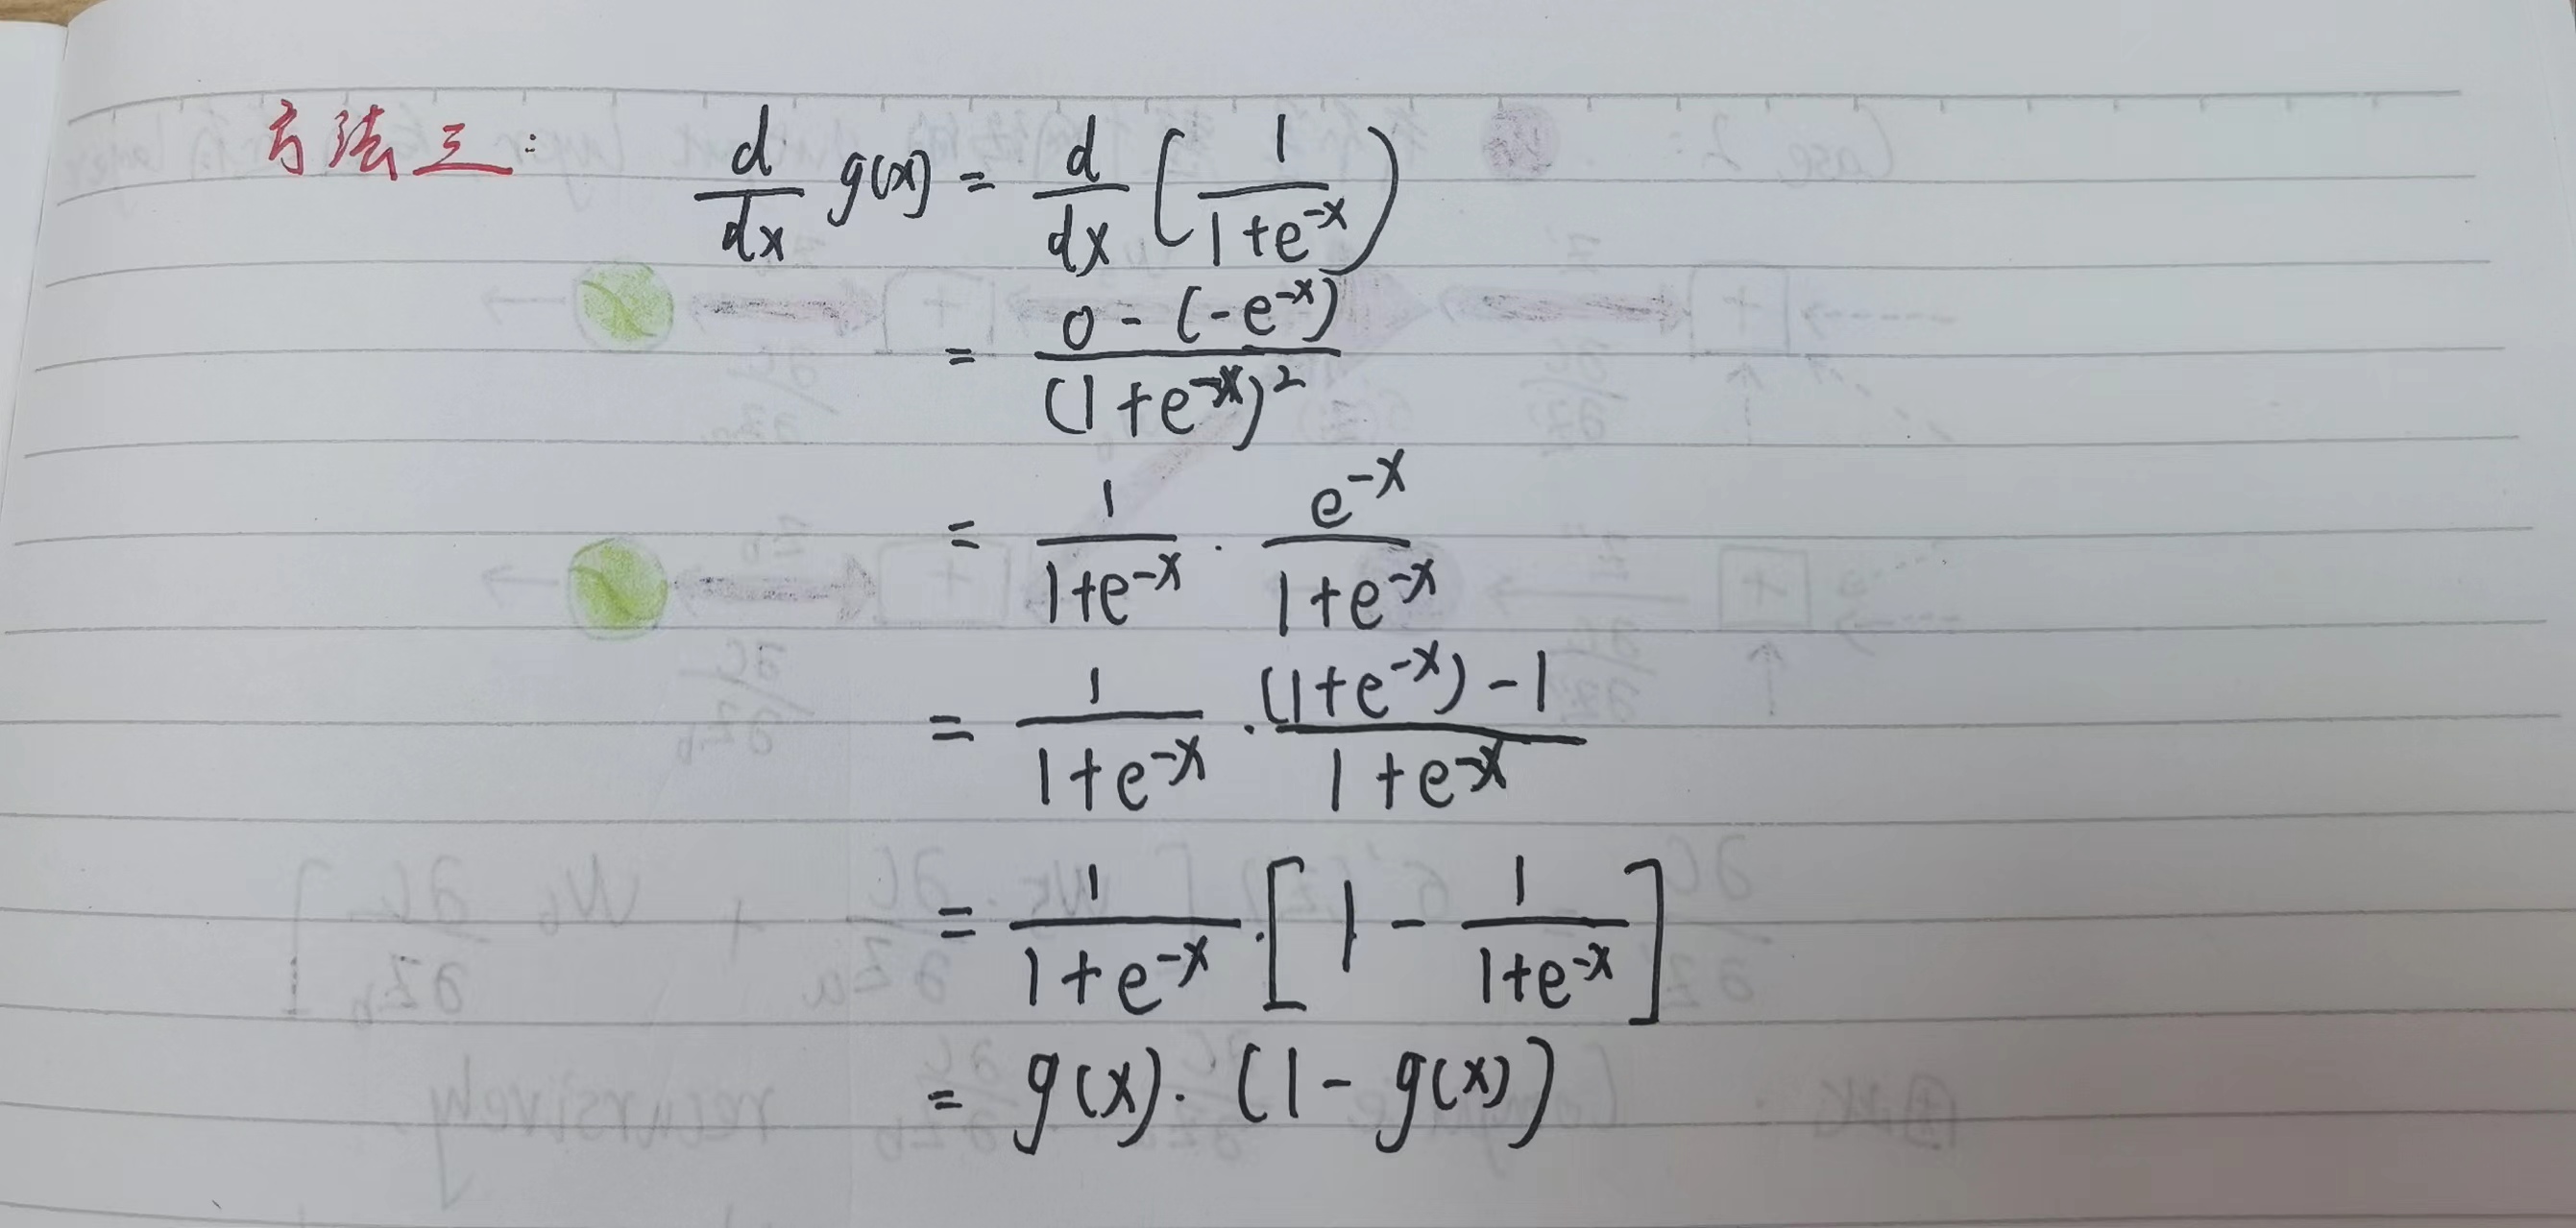 方法三: d/dx g(x) = d/dx (1/(1+e^{-x}))
= (0-(-e^{-x}))/(1+e^{-x})^2
= 1/(1+e^{-x}) · e^{-x}/(1+e^{-x})
= 1/(1+e^{-x}) · ((1+e^{-x})-1)/(1+e^{-x})
= 1/(1+e^{-x}) · [1 - 1/(1+e^{-x})]
= g(x) · (1-g(x))